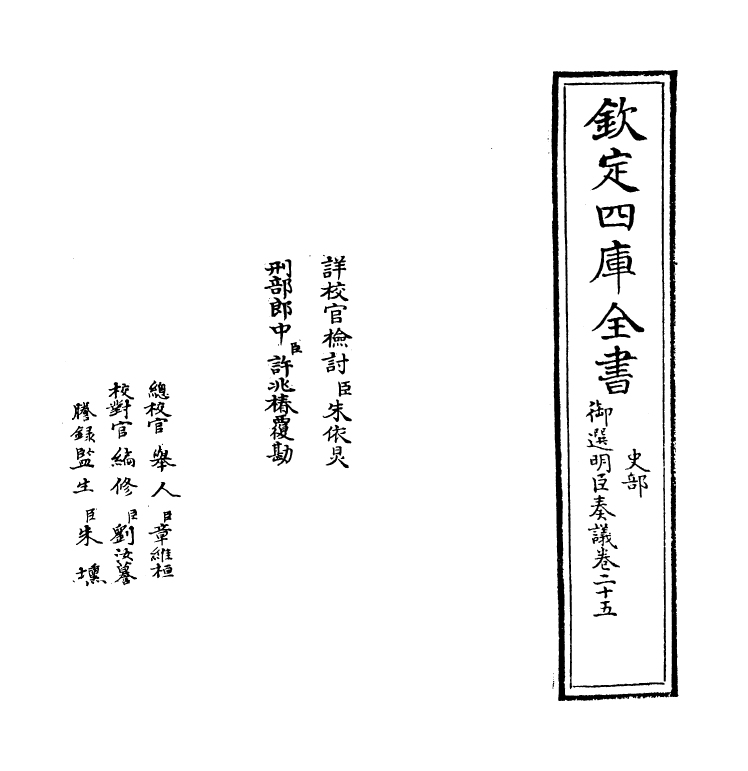 欽定四庫全書
史部
御選明臣奏議卷二十五
詳校官檢討臣朱依炅
刑部郎中臣許兆椿覆勘
總校官舉人臣章維桓
校對官編修臣劉汝謩
謄錄監生臣朱壎